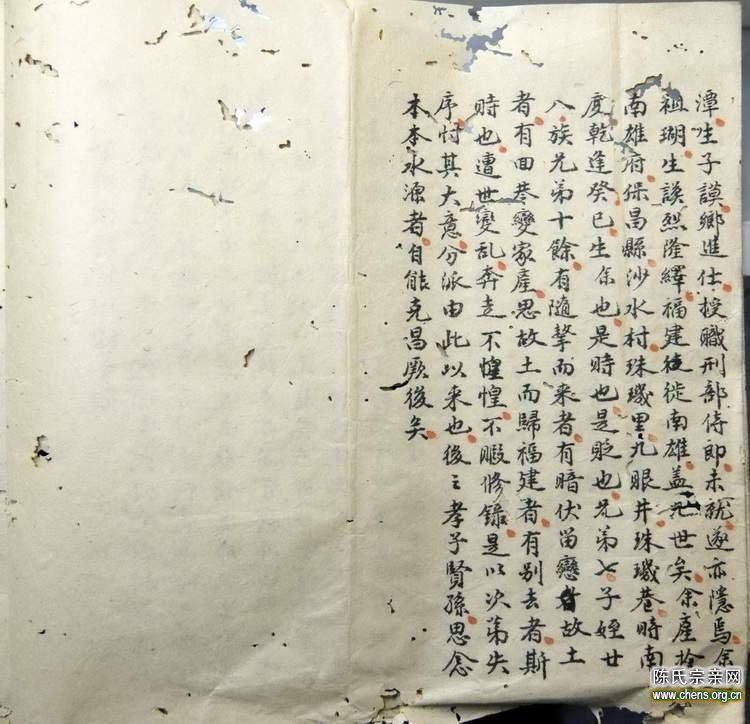 潭生子謨鄉進仕授職刑部侍郎未就遂亦隱焉余
祖瑚生談烈隆繹福建後徙南雄蓋九世矣余產於
南雄府保昌縣沙水村珠璣里九眼井珠璣巷時南
度乾逢癸巳生余也是時也是貶也兄弟七子姪廿
八族兄弟十餘有隨挈而來者有暗伏畄戀者故土
者有回巷變家產思故土而歸福建者有別去者斯
時也遭世變乱奔走不惶惶不暇修錄是以次第失
序忖其大意分派由此以来也後之孝子賢孫思念
本本水源者自能克昌厥後矣
陈氏宗亲网
www.chens.org.cn